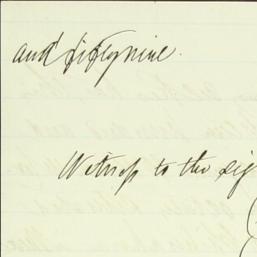 and fifty nine.
Witness to the sig